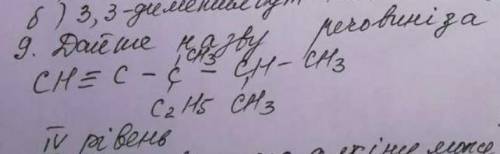 б) 3,3-диметил
9. Дайте назву речовині за
CH₃
CH ≡ C - C - CH - CH₃
C₂H₅ CH₃
IV рівень
може